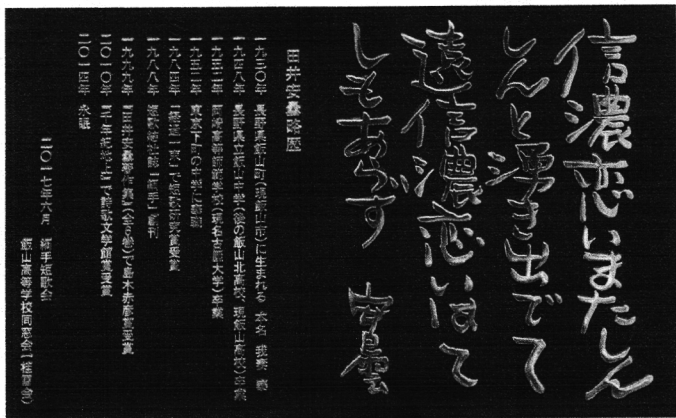 信濃恋いまたしん
しんと湧き出でて
遠信濃恋いはて
しもあらず 安曇
田井安曇略歴
一九三〇年 長野県飯山町(現飯山市)に生まれる 本名 我妻 泰
一九四八年 長野県立飯山中学(後の飯山北高校、現飯山高校)卒業
一九五一年 岡崎高等師範学校(現名古屋大学)卒業
一九五二年 東京下町の中学に勤務
一九八四年 「経過一束」で短歌研究賞受賞
一九八八年 短歌結社誌「綱手」創刊
一九九九年 『田井安曇著作集』(全6巻)で島木赤彦賞受賞
二〇一〇年 『千年紀地上』で詩歌文学館賞受賞
二〇一四年 永眠
二〇一七年六月 綱手短歌会
飯山高等学校同窓会